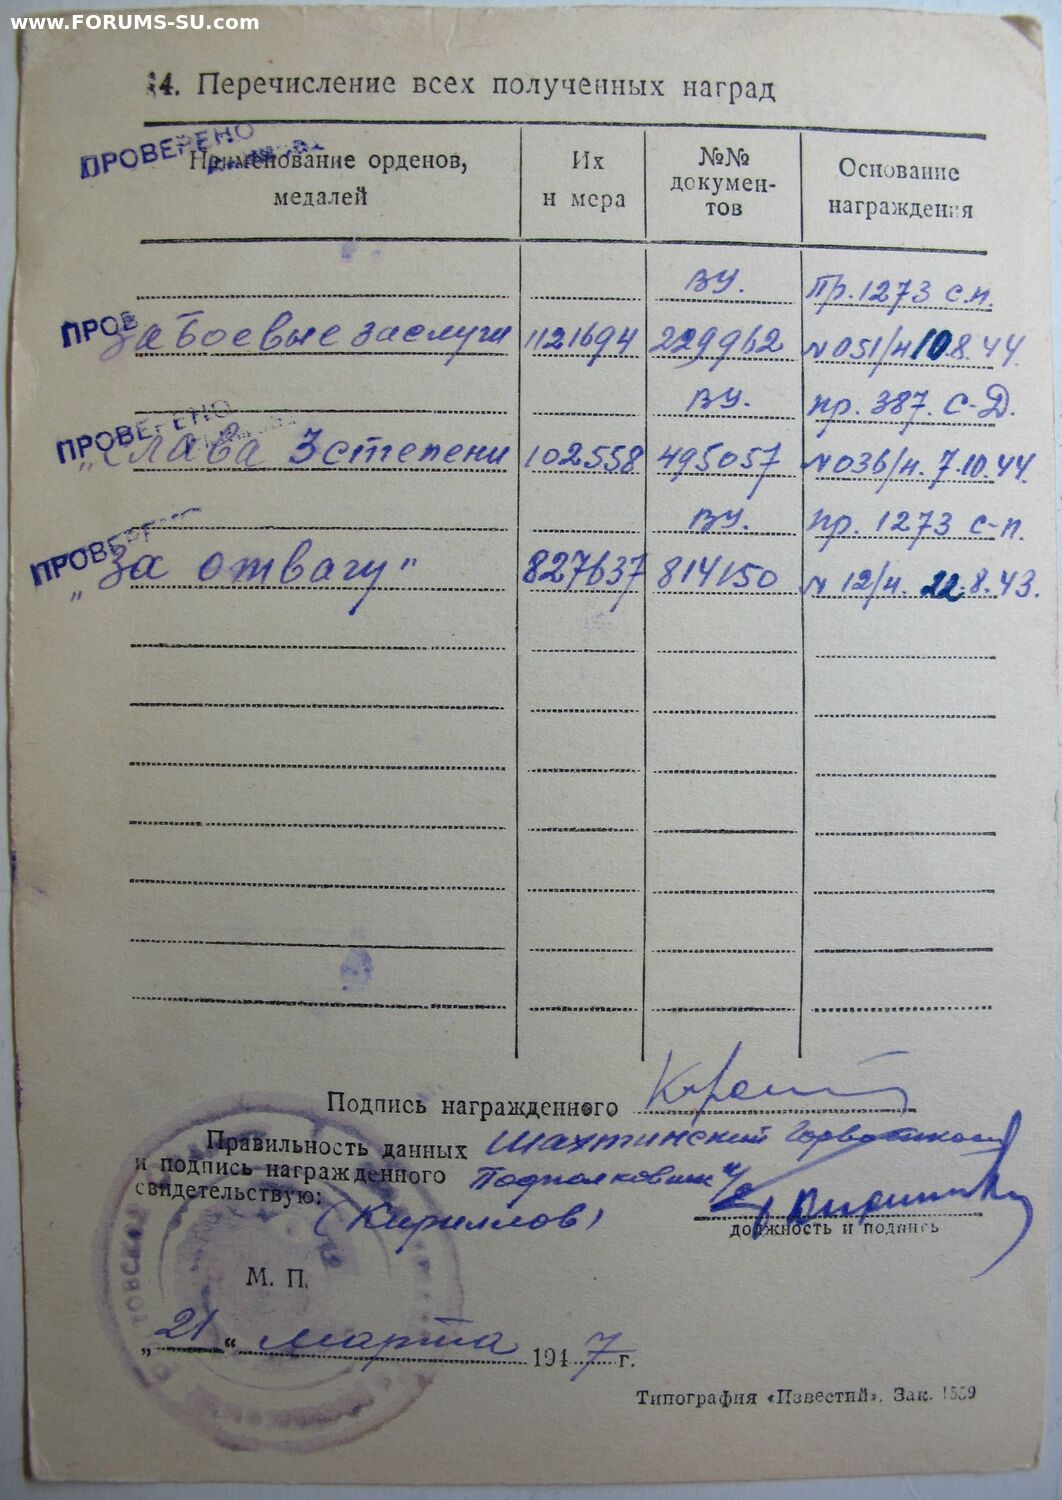 www.FORUMS-SU.com
14. Перечисление всех полученных наград
ПРОВЕРЕНО
Наименование орденов, медалей
Их н мера
№№ докумен-тов
Основание награждения
ВУ. Пр. 1273 с.п.
ПРОВ
За боевые заслуги 1121694 229962 N 051/н 10.8.44
ВУ. пр. 387. С-Д.
ПРОВЕРЕНО
„Слава 3 степени 102558 495057 N 036/н. 7.10.44.
ВУ. пр. 1273 с-п.
ПРОВЕРЕНО
„За отвагу" 827637 814150 N 12/н. 22.8.43.
Подпись награжденного
Правильность данных Шахтинский Горвоенком
и подпись награжденного Подполковник
свидетельствую: (Кириллов)
должность и подпись
М. П.
„21" марта 1947 г.
Типография «Известий». Зак. 1559